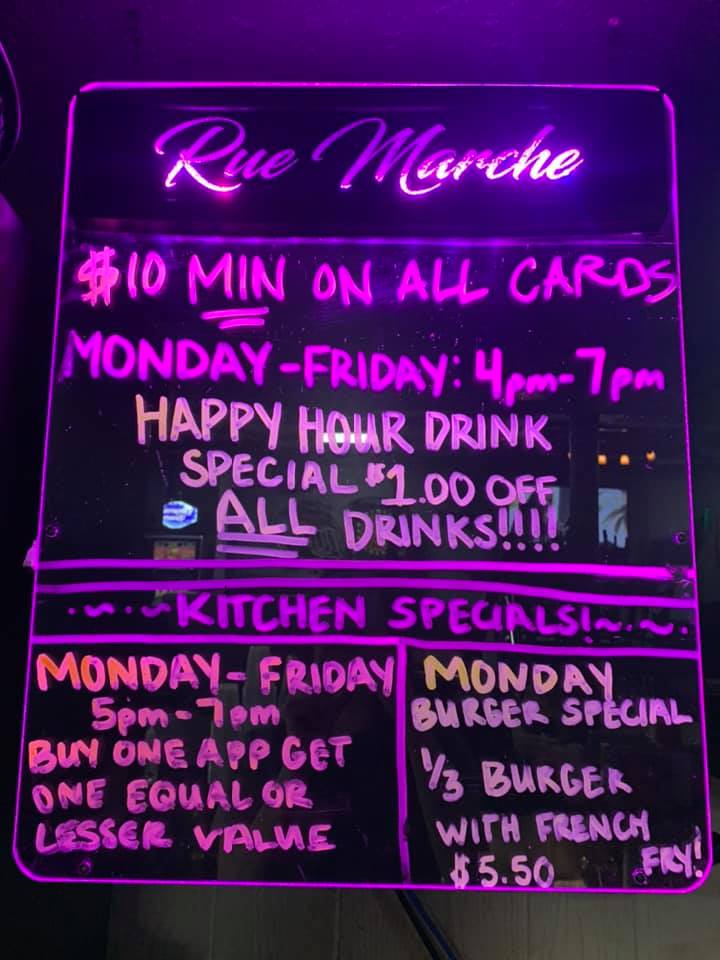 Rue Marche
$10 MIN ON ALL CARDS
MONDAY-FRIDAY: 4pm-7pm
HAPPY HOUR DRINK
SPECIAL $1.00 OFF
ALL DRINKS!!!!
KITCHEN SPECIALS!
MONDAY-FRIDAY
5pm-7pm
BUY ONE APP GET
ONE EQUAL OR
LESSER VALUE
MONDAY
BURGER SPECIAL
1/3 BURGER
WITH FRENCH
FRY!
$5.50